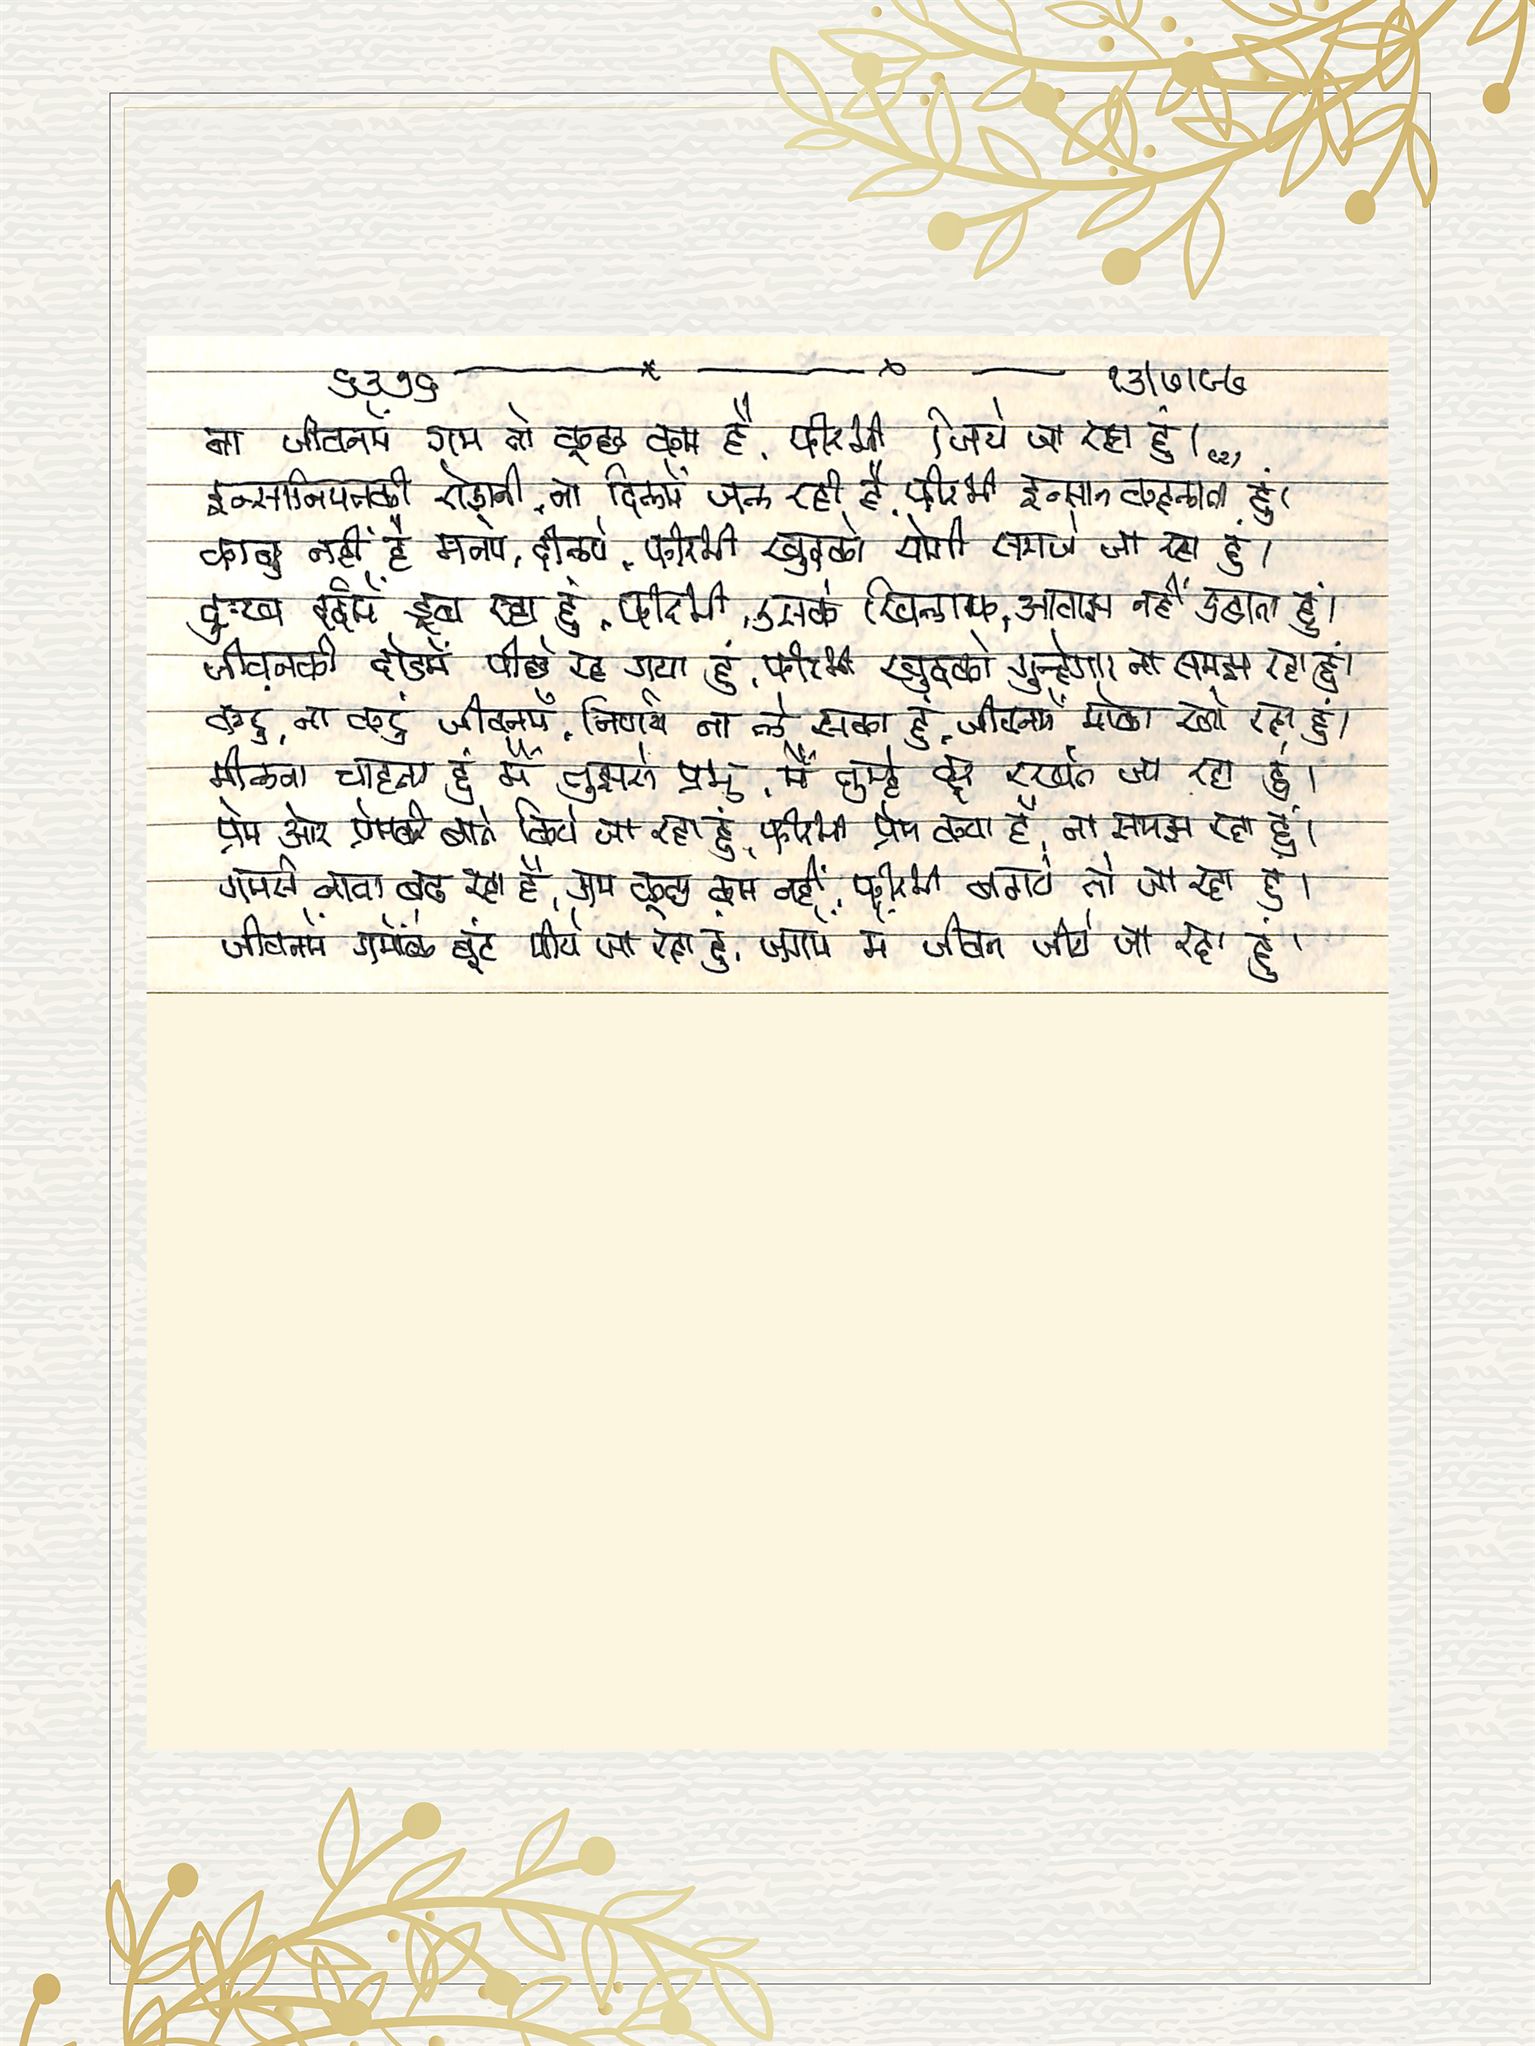 ६३१६ १३/७/८७
ना जीवनमें ग़म तो कुछ कम है, फीरभी जिये जा रहा हुं। (२)
इन्सानियतकी रोशनी, ना दिलमें जल रही है, फीरभी इन्सान कहलाता हुं।
काबु नहीं है मनपे, दीलपे, फीरभी खुदको योगी समजे जा रहा हुं।
दुःख दर्दमें डूब रहा हुं, फीरभी, उसके खिलाफ, आवाझ नहीं उठाता हुं।
जीवनकी दोडमें पीछे रह गया हुं, फीरभी खुदको गुन्हेगार ना समझ रहा हुं।
करुं, ना करुं जीवनमें, निर्णय ना ले सका हुं, जीवनमें मोका खो रहा हुं।
मीलना चाहता हुं मैं तुझसे प्रभु, मैं तुम्हे दूर रखते जा रहा हुं।
प्रेम और प्रेमकी बाते किये जा रहा हुं, फीरभी प्रेम क्या है, ना समझ रहा हुं।
ग़मसे नाता बढ रहा है, ग़म कुछ कम नहीं, फीरभी बनाये तो जा रहा हुं।
जीवनमें ग़मोंके घूंट पीये जा रहा हुं, जगमें में जीवन जीये जा रहा हुं।